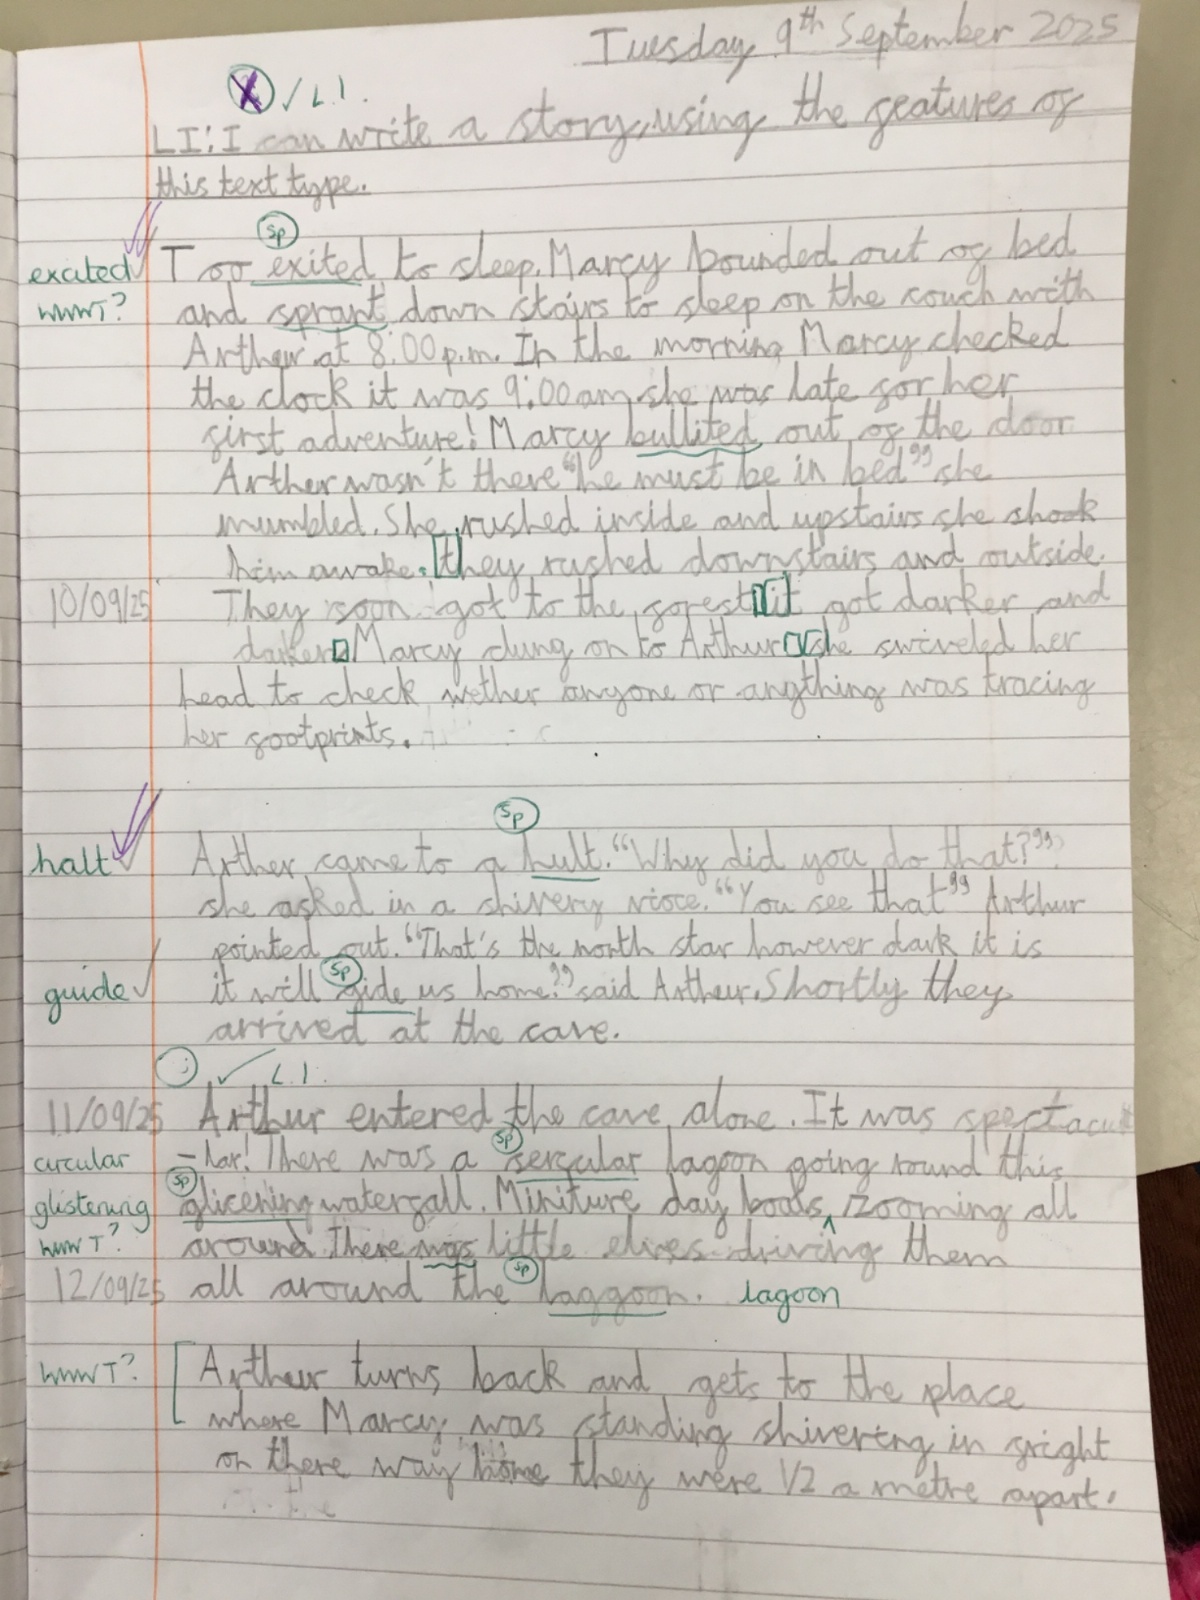 Tuesday 9th September 2025
X ✓ L.I.
LI: I can write a story, using the features of
this text type.
sp
excited ✓ Too exited to sleep. Marcy bounded out of bed
wwwT? and sprant down stairs to sleep on the couch with
Arther at 8:00p.m. In the morning Marcy checked
the clock it was 9:00am she was late for her
first adventure! Marcy bullited out of the door
Arther wasn't there "he must be in bed" she
mumbled. She rushed inside and upstairs she shook
him awake. they rushed downstairs and outside.
10/09/25 They soon got to the forest it got darker and
darker Marcy clung on to Arthur she swiveled her
head to check wether anyone or anything was tracing
her footprints.
sp
halt ✓ Arther came to a hult. "Why did you do that?"
she asked in a shivery vioce. "You see that" Arthur
pointed out. "That's the north star however dark it is
sp
guide ✓ it will gide us home." said Arthur. Shortly they
arrived at the cave.
✓ L.I.
11/09/25 Arthur entered the cave alone. It was spectacu
sp
circular -lar! There was a sercular lagoon going round this
sp
glistening glicening waterfall. Miniture day boats, zooming all
wwwT? around. There was little elves driving them
sp
12/09/25 all around the laggoon. lagoon
wwwT? Arthur turns back and gets to the place
where Marcy was standing shivering in fright
on there way home they were 1/2 a metre apart.